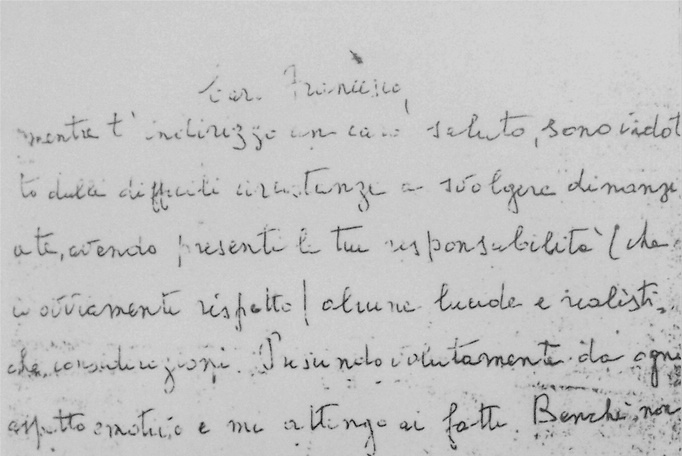 Caro Francesco,
mentre t'indirizzo un caro saluto, sono indot
to dalle difficili circostanze a svolgere dinanzi
a te, avendo presenti le tue responsabilità (che
io ovviamente rispetto) alcune lucide e realisti-
che considerazioni. Prescindo volutamente da ogni
aspetto emotivo e mi attengo ai fatti. Benché non